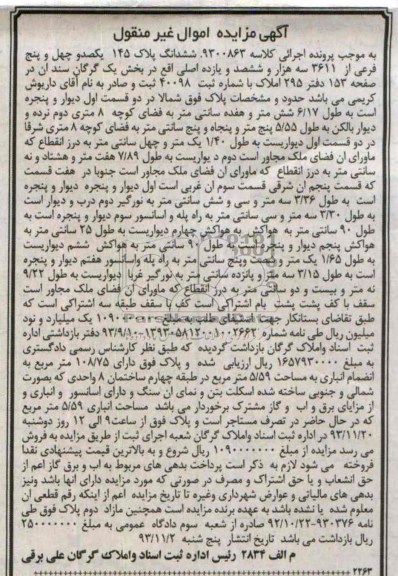 آگهی مزایده اموال غیر منقول
به موجب پرونده اجرائی کلاسه ۹۳۰۰۸۶۳. ششدانگ پلاک ۱۴۵ یکصدو چهل و پنج
فرعی از ۳۶۱۱ سه هزار و ششصد و یازده اصلی اقع در بخش یک گرگان سند ان در
صفحه ۱۵۳ دفتر ۲۹۵ املاک با شماره ثبت ۴۰۰۹۸ ثبت و صادر به نام آقای داریوش
کریمی می باشد حدود و مشخصات پلاک فوق شمالا در دو قسمت اول دیوار و پنجره
است به طول ۶/۱۷ شش متر و هفده سانتی متر به فضای کوچه ۸ متری دوم نرده و
دیوار بالکن به طول ۵/۵۵ پنج متر و پنجاه و پنج سانتی متر به فضای کوچه ۸ متری شرقا
در دو قسمت اول دیواریست به طول ۱/۴۰ یک متر و چهل سانتی متر به درز انقطاع که
ماورای ان فضای ملک مجاور است دوم د یواریست به طول ۷/۸۹ هفت متر و هشتاد و نه
سانتی متر به درز انقطاع که ماورای ان فضای ملک مجاور است جنوبا در هفت قسمت
که قسمت پنجم ان شرقی قسمت سوم ان غربی است اول دیوار و پنجره دیوار و پنجره
است به طول ۳/۳۶ سه متر و سی و شش سانتی متر به نورگیر دوم درب و دیوار است
به طول ۳/۳۰ سه متر و سی سانتی متر به راه پله و اسانسور سوم دیوار و پنجره است به
طول ۹۰ سانتی متر به هواکش به هواکش چهارم دیواریست به طول ۲۵ سانتی متر به
هواکش پنجم دیوار و پنجره است به طول ۹۰ سانتی متر به هواکش ششم دیواریست
به طول ۱/۶۵ یک متر و شصت وپنج سانتی متر به راه پله واسانسور هفتم دیوار و پنجره
است به طول ۳/۱۵ سه متر و پانزده سانتی متر به نورگیر غربا دیواریست به طول ۹/۲۲
نه متر و بیست و دو سانتی متر به درز انقطاع که ماورای ان فضای ملک مجاور است
سقف با کف پشت بام اشتراکی است کف با سقف طبقه سه اشتراکی است که
طبق تقاضای بستانکار جهت استیفای طلب به مبلغ ۱۰۹۰۰۰۰۰۰۰ یک میلیارد و نود
میلیون ریال طی نامه شماره ۱۳۹۳۰۵۸۱۲۰۰۱۰۰۲۶۶۳-۹۳/۹/۱۰ دفتر بازداشتی اداره
ثبت اسناد واملاک گرگان بازداشت گردیده که طبق نظر کارشناس رسمی دادگستری
به مبلغ ۱۶۵۷۹۳۰۰۰۰ ریال ارزیابی شده و پلاک فوق دارای ۱۰۸/۷۵ متر مربع به
انضمام انباری به مساحت ۵/۵۹ متر مربع در طبقه چهارم ساختمان ۸ واحدی که بصورت
شمالی و جنوبی ساخته شده اسکلت بتن و نمای ان سنگ و دارای اسانسور و انباری و
از مزایای برق و اب و گاز مشترک برخوردار می باشد مساحت انباری ۵/۵۹ متر مربع
که در حال حاضر در تصرف مستاجر است و پلاک فوق از ساعت۹ الی ۱۲ روز دوشنبه
۹۳/۱۱/۳۰ در اداره ثبت اسناد واملاک گرگان شعبه اجرای ثبت از طریق مزایده به فروش
می رسد مزایده از مبلغ ۱۰۹۰۰۰۰۰۰۰ ریال شروع و به بالاترین قیمت پیشنهادی نقدا
فروخته می شود لازم به ذکر است پرداخت بدهی های مربوط به اب و برق گاز اعم از
حق انشعاب و یا حق اشتراک و مصرف در صورتی که مورد مزایده دارای انها باشد ونیز
بدهی های مالیاتی و عوارض شهرداری وغیره تا تاریخ مزایده اعم از اینکه رقم قطعی ان
معلوم شده یا نشده باشد به عهده برنده مزایده است همچنین مازاد دوم پلاک فوق طی
نامه ۹۳۰۳۷۶-۹۲/۱۰/۲۲ صادره از شعبه سوم دادگاه عمومی به مبلغ ۲۵۰۰۰۰۰۰۰
ریال بازداشت می باشد تاریخ انتشار پنج شنبه ۹۳/۱۱/۲
م الف ۲۸۳۴ رئیس اداره ثبت اسناد واملاک گرگان علی برقی
۲۲۶۳